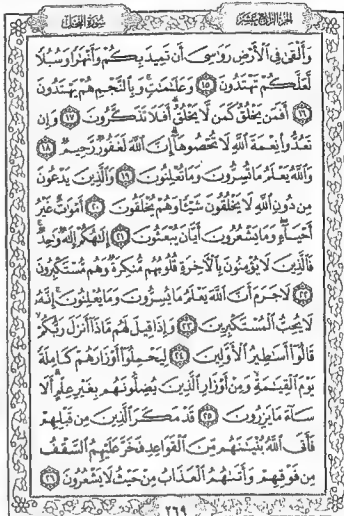 الجزء الرابع عشر
سورة النحل
وَأَلْقَىٰ فِي الْأَرْضِ رَوَاسِيَ أَن تَمِيدَ بِكُمْ وَأَنْهَارًا وَسُبُلًا
لَّعَلَّكُمْ تَهْتَدُونَ ۝١٥ وَعَلَامَاتٍ وَبِالنَّجْمِ هُمْ يَهْتَدُونَ
۝١٦ أَفَمَن يَخْلُقُ كَمَن لَّا يَخْلُقُ أَفَلَا تَذَكَّرُونَ ۝١٧ وَإِن
تَعُدُّوا نِعْمَةَ اللَّهِ لَا تُحْصُوهَا إِنَّ اللَّهَ لَغَفُورٌ رَّحِيمٌ ۝١٨
وَاللَّهُ يَعْلَمُ مَا تُسِرُّونَ وَمَا تُعْلِنُونَ ۝١٩ وَالَّذِينَ يَدْعُونَ
مِن دُونِ اللَّهِ لَا يَخْلُقُونَ شَيْئًا وَهُمْ يُخْلَقُونَ ۝٢٠ أَمْوَاتٌ غَيْرُ
أَحْيَاءٍ وَمَا يَشْعُرُونَ أَيَّانَ يُبْعَثُونَ ۝٢١ إِلَٰهُكُمْ إِلَٰهٌ وَاحِدٌ
فَالَّذِينَ لَا يُؤْمِنُونَ بِالْآخِرَةِ قُلُوبُهُم مُّنكِرَةٌ وَهُم مُّسْتَكْبِرُونَ
۝٢٢ لَا جَرَمَ أَنَّ اللَّهَ يَعْلَمُ مَا يُسِرُّونَ وَمَا يُعْلِنُونَ إِنَّهُ
لَا يُحِبُّ الْمُسْتَكْبِرِينَ ۝٢٣ وَإِذَا قِيلَ لَهُم مَّاذَا أَنزَلَ رَبُّكُمْ
قَالُوا أَسَاطِيرُ الْأَوَّلِينَ ۝٢٤ لِيَحْمِلُوا أَوْزَارَهُمْ كَامِلَةً
يَوْمَ الْقِيَامَةِ وَمِنْ أَوْزَارِ الَّذِينَ يُضِلُّونَهُم بِغَيْرِ عِلْمٍ أَلَا
سَاءَ مَا يَزِرُونَ ۝٢٥ قَدْ مَكَرَ الَّذِينَ مِن قَبْلِهِمْ
فَأَتَى اللَّهُ بُنْيَانَهُم مِّنَ الْقَوَاعِدِ فَخَرَّ عَلَيْهِمُ السَّقْفُ
مِن فَوْقِهِمْ وَأَتَاهُمُ الْعَذَابُ مِنْ حَيْثُ لَا يَشْعُرُونَ ۝٢٦
٢٦٩